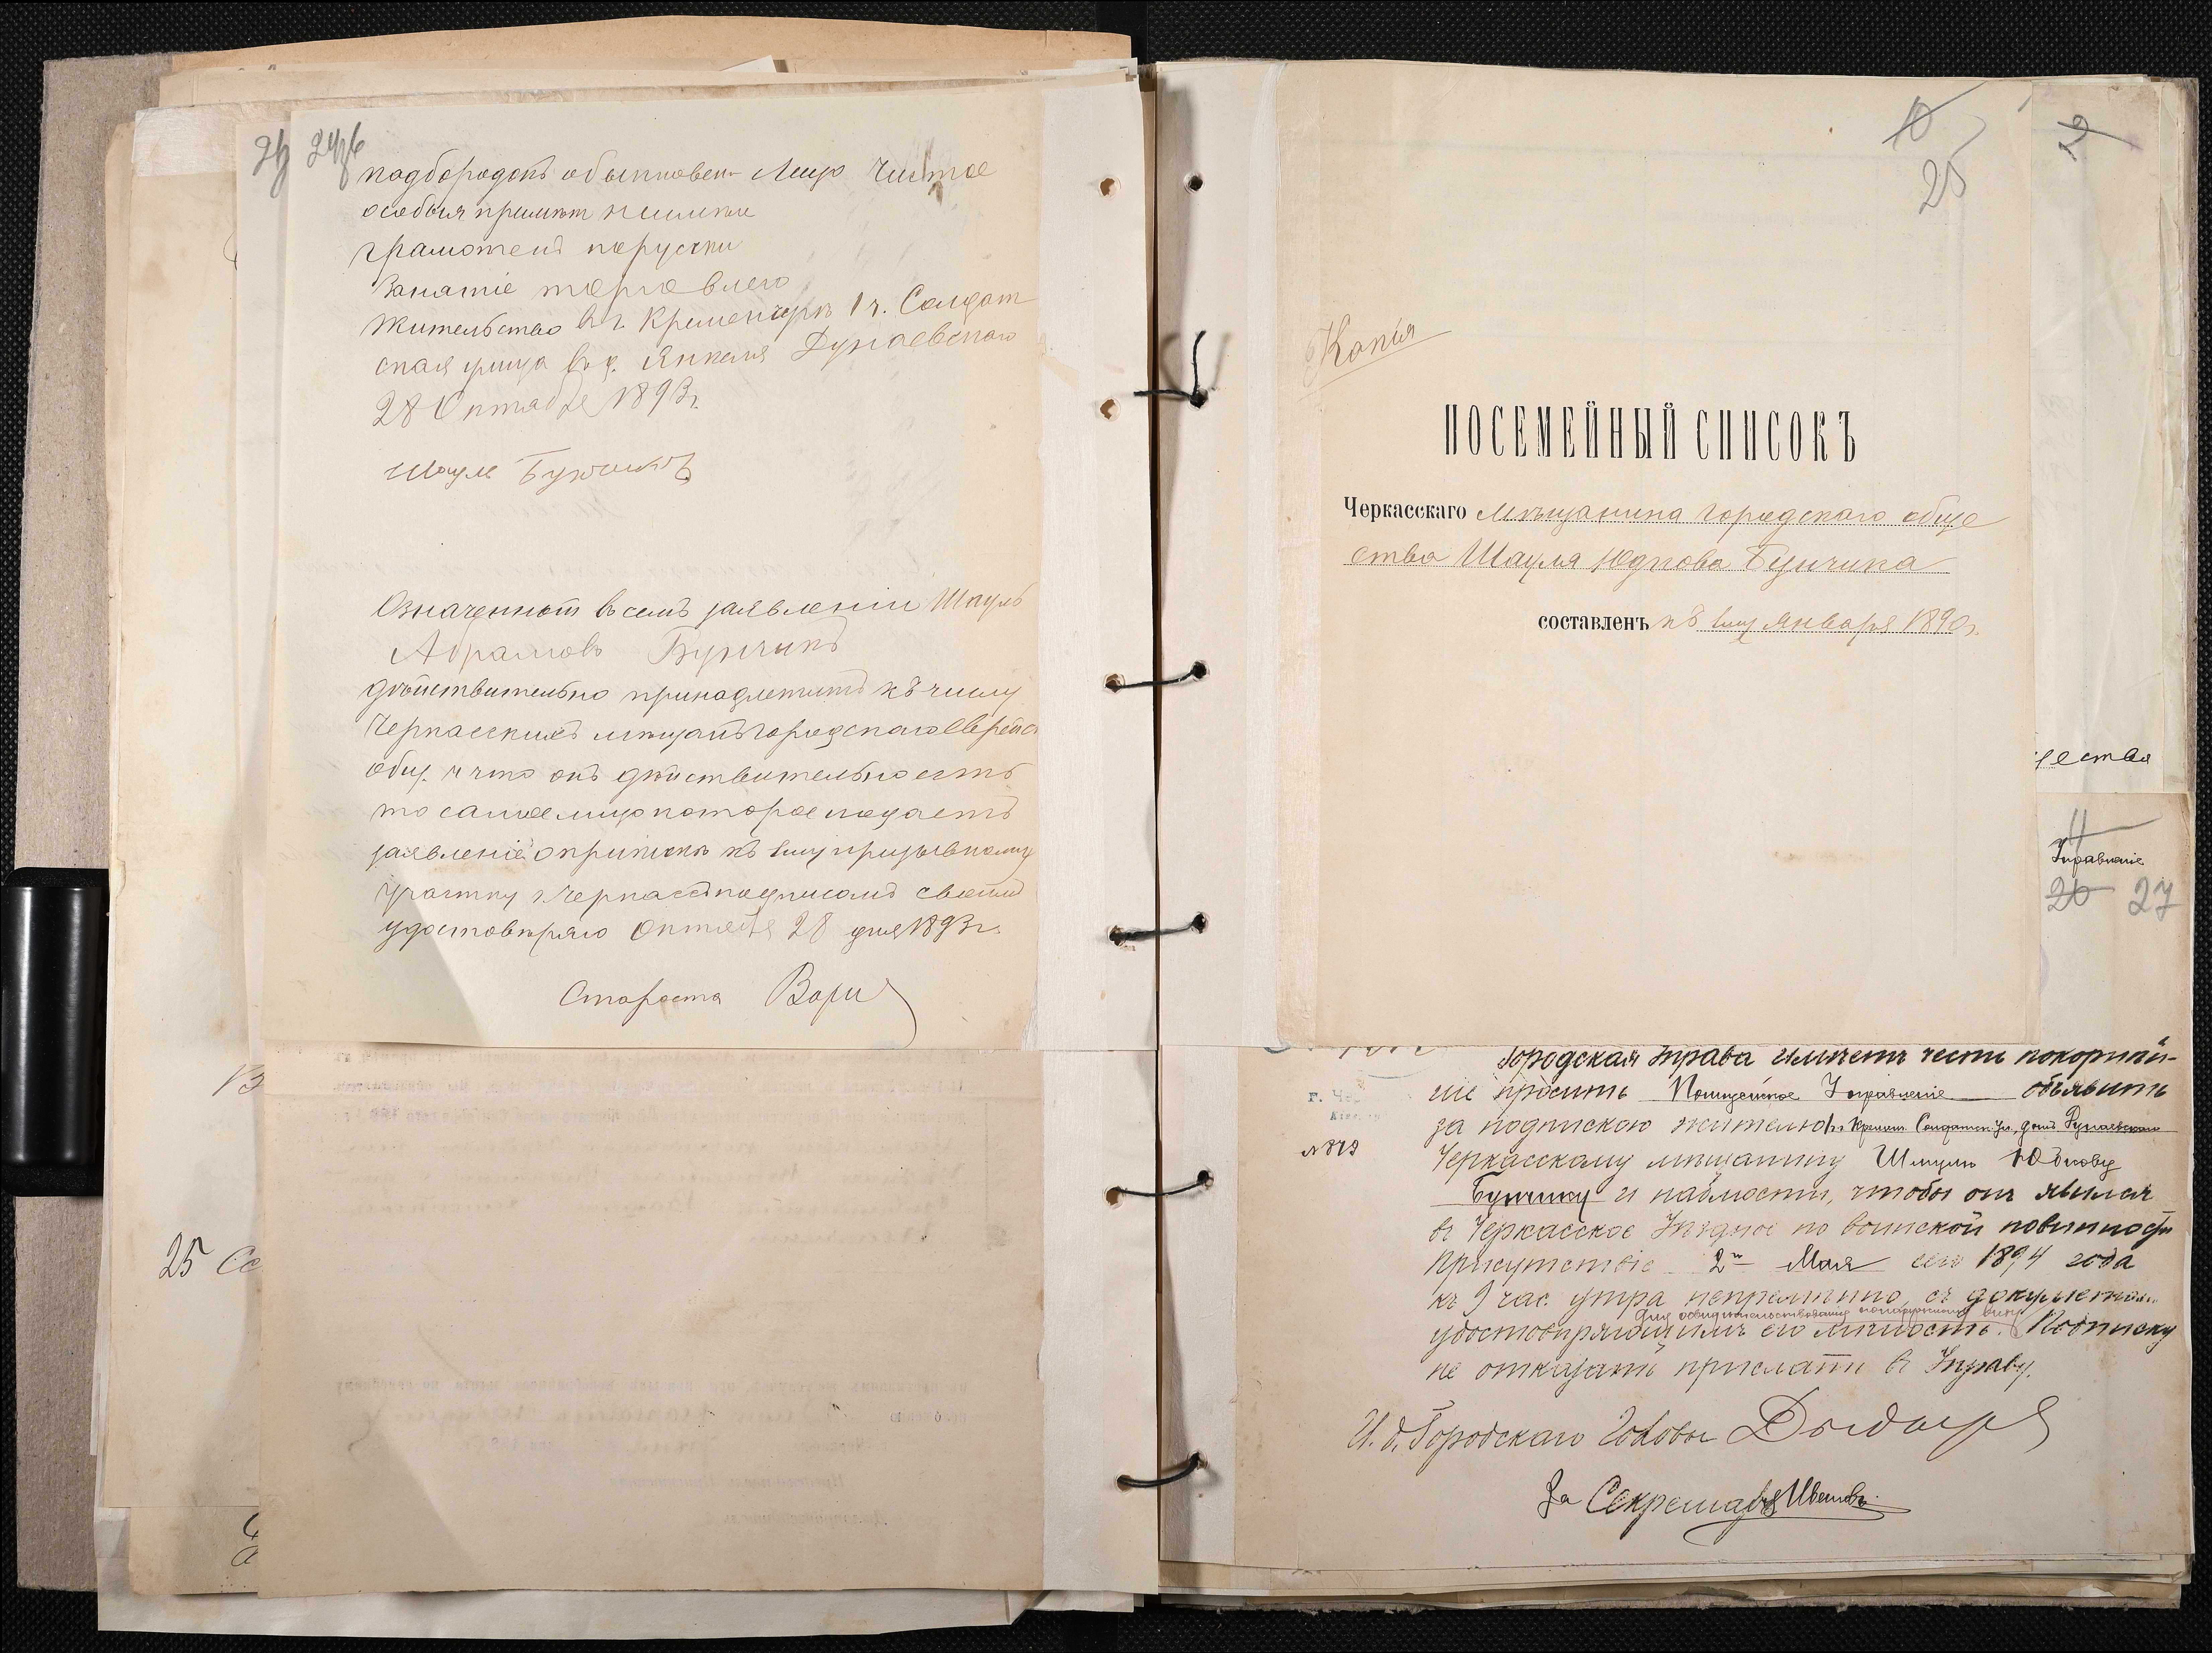 24об
подбородокъ обыкновен. Лицо чистое
особыя примѣт неимѣи
грамотенъ порусски
Занятіе торговлею
Жительство в г. Кременчугѣ 1 ч. Солдат
ская улица в д. Янкеля Дунаевскаго
28 Октября 1893 г.
Шауль Бунчикъ
Означенный в семъ заявленіи Шауль
Абрамовъ Бунчикъ
дѣйствительно принадлежитъ къ числу
Черкасскихъ мѣщанъ городскаго Еврейс
общ. и что онъ дѣйствительно есть
то самое лицо которое подаетъ
заявленіе о припискѣ къ 1му призывному
участку г. Черкассъ подписомъ своимъ
удостовѣряю Октября 28 дня 1893 г.
Староста
25
Копія
ПОСЕМЕЙНЫЙ СПИСОКЪ
Черкасскаго мѣщанина городскаго обще
ства Шауля Юдкова Бунчика
составленъ къ 1му января 1890 г.
2
ества
11
Управленіе
26 27
Городская Управа имѣетъ честь покорнѣй-
ше просить Полицейское Управленіе объявить
за подпискою жителю г. Кременч. Солдатск. ул., домъ Дунаевскаго
№ 873
Черкасскому мѣщанину Шмулю Юдкову
Бунчику и наблюсти, чтобы онъ явился
въ Черкасское Уѣздное по воинской повинности
Присутствіе 2го Мая сего 1894 года
къ 9 час. утра непремѣнно, съ документами
для освидѣтельствованія по наружному виду
удостовѣряющимъ его личность. Подписку
не отказать прислать въ Управу.
И. д. Городскаго Головы
За Секретаря Ивановъ
25 Сс